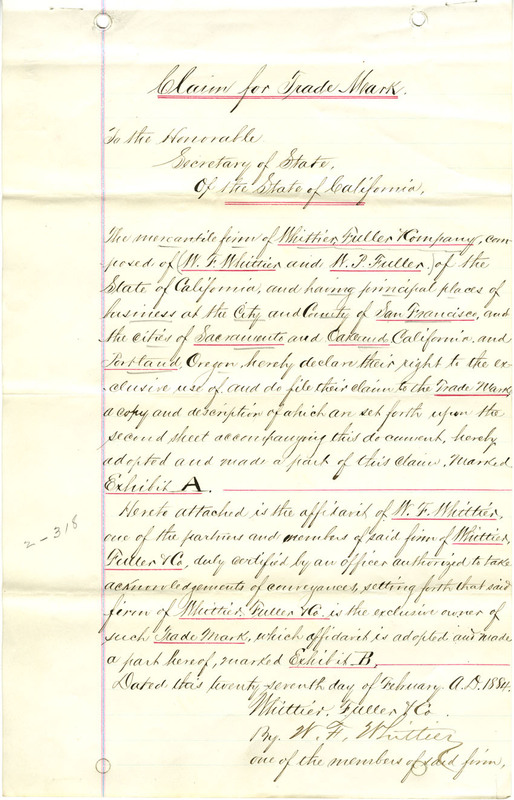 Claim for Trade Mark.
To the Honorable
Secretary of State,
Of the State of California,
The mercantile firm of Whittier Fuller & Company, com-
posed of (W. F. Whittier and W. P. Fuller) of the
State of California, and having principal places of
business at the City and County of San Francisco, and
the cities of Sacramento and Oakland, California and
Portland, Oregon hereby declare their right to the ex-
clusive use of, and do file their claim to the Trade Mark,
a copy and description of which are set forth upon the
second sheet accompanying this document, hereby
adopted and made a part of this claim, Marked
Exhibit A.
Hereto attached is the affidavit of W. F. Whittier,
one of the partners and members of said firm of Whittier,
Fuller & Co, duly certified by an officer authorized to take
acknowledgements of conveyances, setting forth that said
firm of Whittier, Fuller & Co. is the exclusive owner of
such Trade Mark, which affidavit is adopted and made
a part hereof, marked Exhibit B.
2-318
Dated this twenty-seventh day of February A.D. 1884.
Whittier. Fuller & Co.
By. W. F. Whittier
one of the members of said firm.